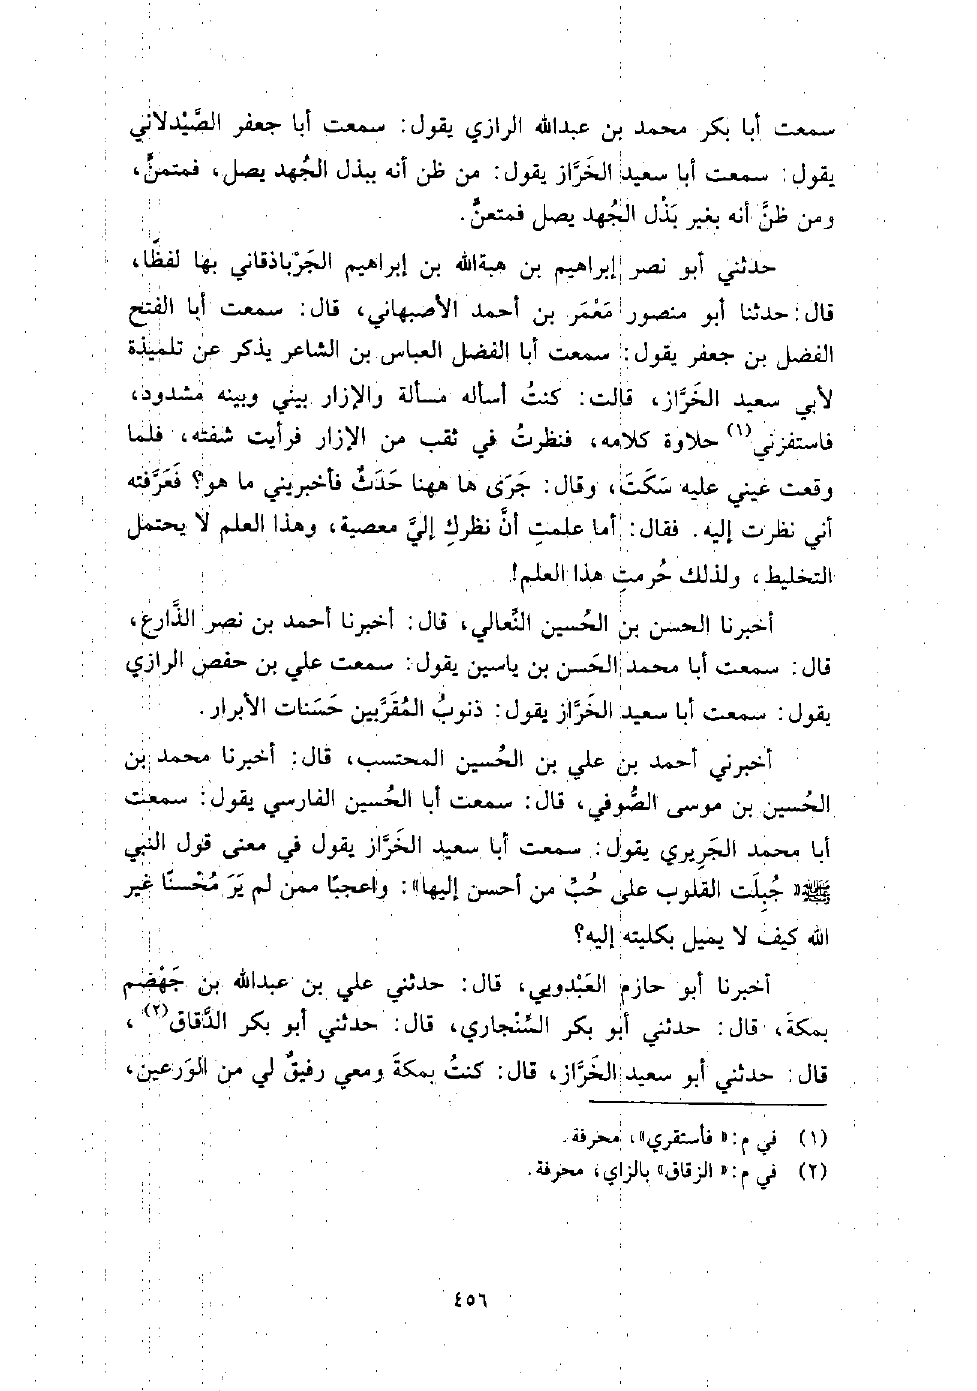 سمعت أبا بكر محمد بن عبدالله الرازي يقول: سمعت أبا جعفر الصَّيْدلاني
يقول: سمعت أبا سعيد الخَرَّاز يقول: من ظن أنه ببذل الجُهد يصل، فمتمنٍّ،
ومن ظنَّ أنه بغير بَذْل الجُهد يصل فمتعنٍّ.
حدثني أبو نصر إبراهيم بن هبةالله بن إبراهيم الجَرْباذقاني بها لفظًا،
قال: حدثنا أبو منصور مَعْمَر بن أحمد الأصبهاني، قال: سمعت أبا الفتح
الفضل بن جعفر يقول: سمعت أبا الفضل العباس بن الشاعر يذكر عن تلميذة
لأبي سعيد الخَرَّاز، قالت: كنتُ أسأله مسألة والإزار بيني وبينه مشدود،
فاستفزني(١) حلاوة كلامه، فنظرتُ في ثقب من الإزار فرأيت شفته، فلما
وقعت عيني عليه سَكَتَ، وقال: جَرَى ها ههنا حَدَثٌ فأخبريني ما هو؟ فَعَرَّفته
أني نظرت إليه. فقال: أما علمتِ أنَّ نظركِ إليَّ معصية، وهذا العلم لا يحتمل
التخليط، ولذلك حُرمتِ هذا العلم!
أخبرنا الحسن بن الحُسين النِّعالي، قال: أخبرنا أحمد بن نصر الذَّارع،
قال: سمعت أبا محمد الحَسن بن ياسين يقول: سمعت علي بن حفص الرازي
يقول: سمعت أبا سعيد الخَرَّاز يقول: ذنوبُ المُقَرَّبين حَسَنات الأبرار.
أخبرني أحمد بن علي بن الحُسين المحتسب، قال: أخبرنا محمد بن
الحُسين بن موسى الصُّوفي، قال: سمعت أبا الحُسين الفارسي يقول: سمعت
أبا محمد الجَريري يقول: سمعت أبا سعيد الخَرَّاز يقول في معنى قول النبي
ﷺ «جُبِلَت القلوب على حُبِّ من أحسن إليها»: واعجبًا ممن لم يَرَ مُحْسنًا غير
الله كيف لا يميل بكليته إليه؟
أخبرنا أبو حازم العَبْدويي، قال: حدثني علي بن عبدالله بن جَهْضم
بمكةَ، قال: حدثني أبو بكر السِّنْجاري، قال: حدثني أبو بكر الدَّقاق(٢)،
قال: حدثني أبو سعيد الخَرَّاز، قال: كنتُ بمكةَ ومعي رفيقٌ لي من الوَرعين،
(١) في م: «فأستقري»، محرفة.
(٢) في م: «الزقاق» بالزاي، محرفة.
٤٥٦